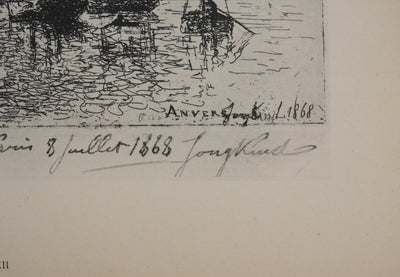 ANVERS Jongkind 1868
Paris 8 Juillet 1868 Jongkind